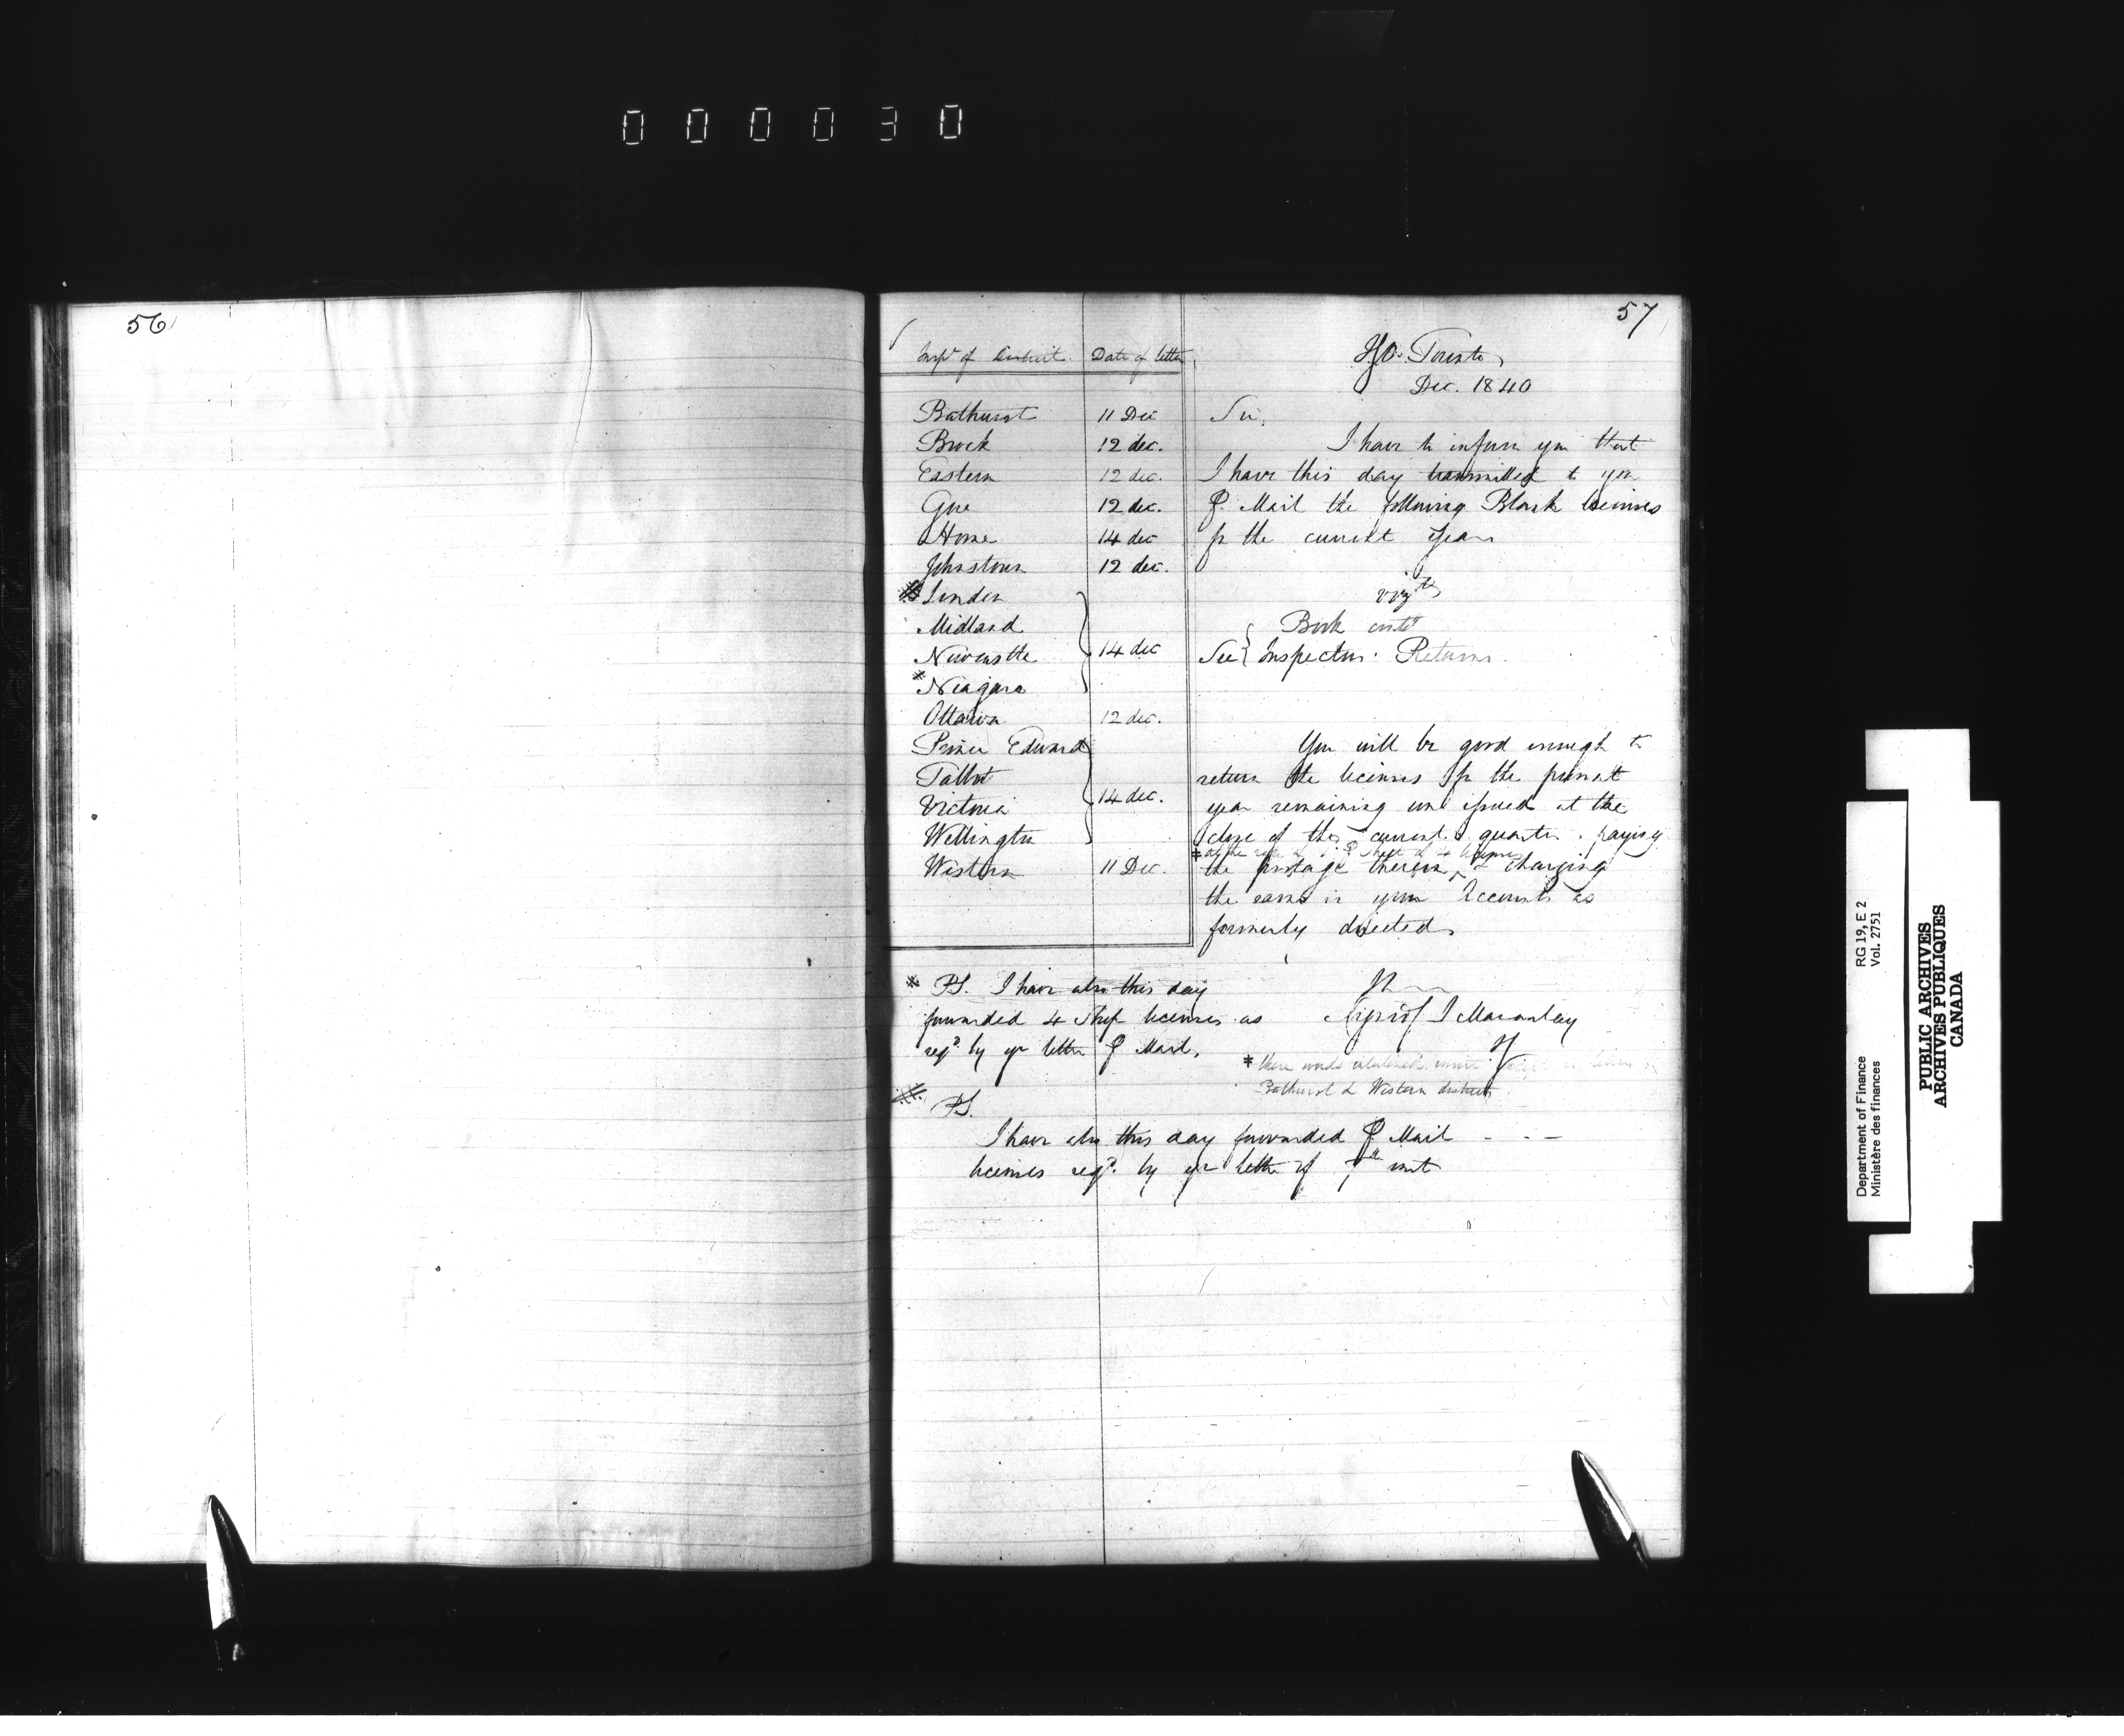 000030
56
57
Inspr of District. Date of letter
Bathurst 11 Dec
Brock 12 dec.
Eastern 12 dec.
Gore 12 dec.
Home 14 dec
Johnstown 12 dec.
London
Midland
Newcastle 14 dec
* Niagara
Ottawa 12 dec.
Prince Edward
Talbot
Victoria 14 dec.
Wellington
Western 11 Dec.
Toronto
Dec. 1840
Sir,
I have to inform you that
I have this day transmitted to you
P. Mail the following Blank licenses
for the current year
viz
Book
See Inspectors Returns.
You will be good enough to
return the licenses for the present
year remaining un issued at the
close of the current quarter, paying
the postage thereon & charging
the same in your Accounts as
formerly directed
* P.S. I have also this day
forwarded 4 Shop licenses as
reqd. by yr letter P Mail.
(signed) J Macaulay
* these words
Bathurst & Western districts
P.S.
I have also this day forwarded P Mail - - -
licenses reqd. by yr letter of 7th inst
Department of Finance RG 19, E 2
Ministère des finances Vol. 2751
PUBLIC ARCHIVES
ARCHIVES PUBLIQUES
CANADA